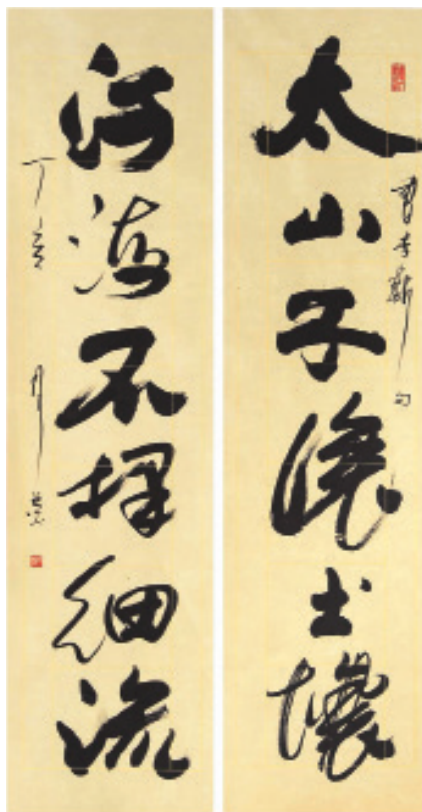 太山子讓土壤
書李斯句
河海不擇細流
丁亥